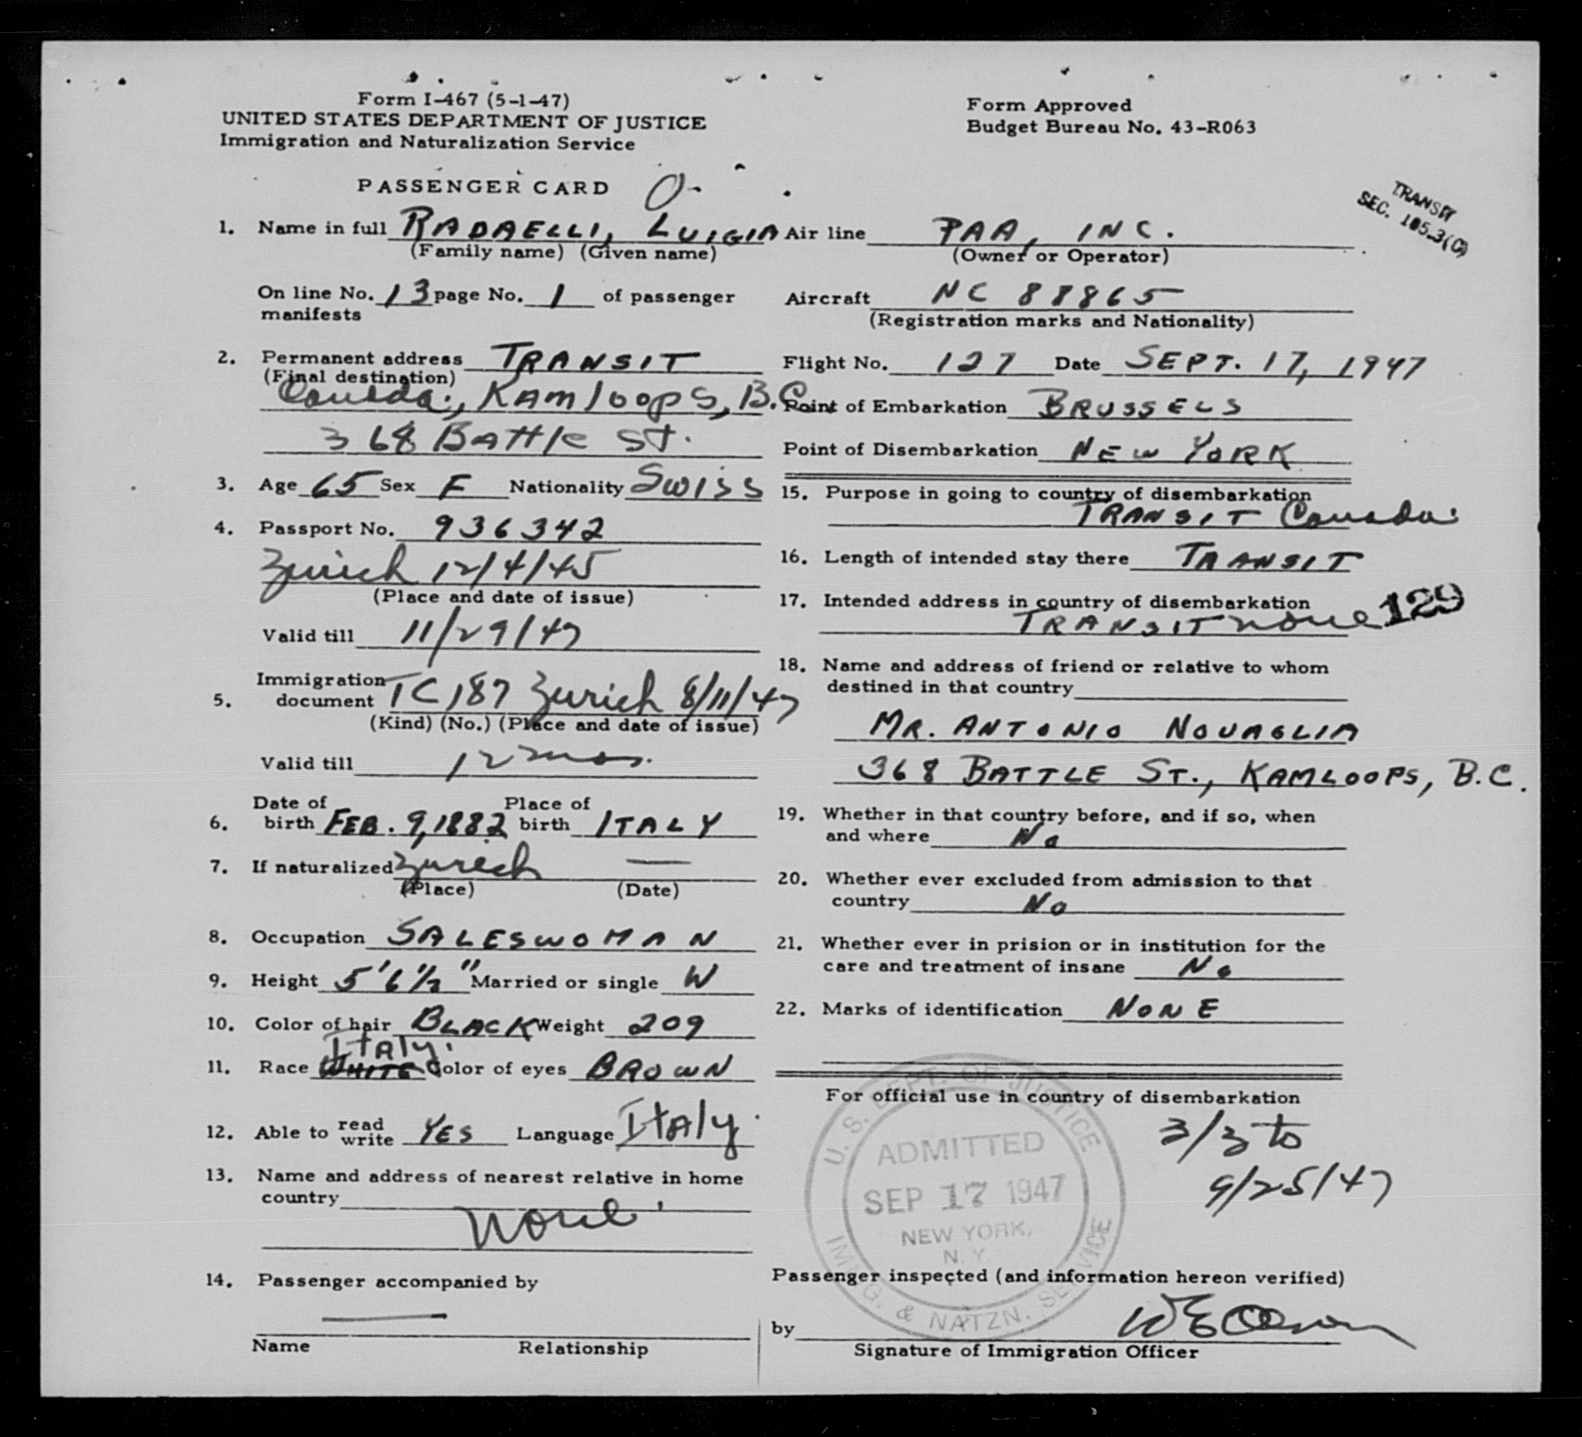 Form I-467 (5-1-47)
UNITED STATES DEPARTMENT OF JUSTICE
Immigration and Naturalization Service
Form Approved
Budget Bureau No. 43-R063
PASSENGER CARD
TRANSIT
SEC. 105.3(C)
1. Name in full RADAELLI, LUIGIA
(Family name) (Given name)
On line No. 13 page No. 1 of passenger
manifests
2. Permanent address TRANSIT
(Final destination)
Canada, Kamloops, B.C.
368 Battle St.
3. Age 65 Sex F Nationality Swiss
4. Passport No. 936342
Zurich 12/4/45
(Place and date of issue)
Valid till 11/29/47
Immigration
5. document TC 187 Zurich 8/11/47
(Kind) (No.) (Place and date of issue)
Valid till 12 mos.
Date of Place of
6. birth FEB. 9, 1882 birth ITALY
7. If naturalized Zurich —
(Place) (Date)
8. Occupation SALESWOMAN
9. Height 5' 6 1/2" Married or single W
10. Color of hair BLACK Weight 209
Italy.
11. Race WHITE Color of eyes BROWN
12. Able to read write YES Language Italy
13. Name and address of nearest relative in home
country
None
14. Passenger accompanied by
—
Name Relationship
Air line PAA, INC.
(Owner or Operator)
Aircraft NC 88865
(Registration marks and Nationality)
Flight No. 127 Date SEPT. 17, 1947
Point of Embarkation BRUSSELS
Point of Disembarkation NEW YORK
15. Purpose in going to country of disembarkation
TRANSIT Canada
16. Length of intended stay there TRANSIT
17. Intended address in country of disembarkation
TRANSIT none 129
18. Name and address of friend or relative to whom
destined in that country
MR. ANTONIO NOVAGLIA
368 BATTLE ST., KAMLOOPS, B.C.
19. Whether in that country before, and if so, when
and where No
20. Whether ever excluded from admission to that
country No
21. Whether ever in prision or in institution for the
care and treatment of insane No
22. Marks of identification NONE
For official use in country of disembarkation
3/3 to
9/25/47
U. S. DEPT. OF JUSTICE
ADMITTED
SEP 17 1947
NEW YORK,
N. Y.
IMMIG. & NATZN. SERVICE
Passenger inspected (and information hereon verified)
by
Signature of Immigration Officer